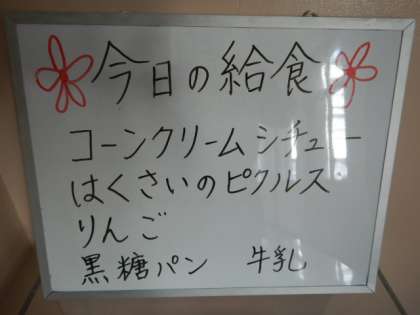 今日の給食
コーンクリームシチュー
はくさいのピクルス
りんご
黒糖パン 牛乳